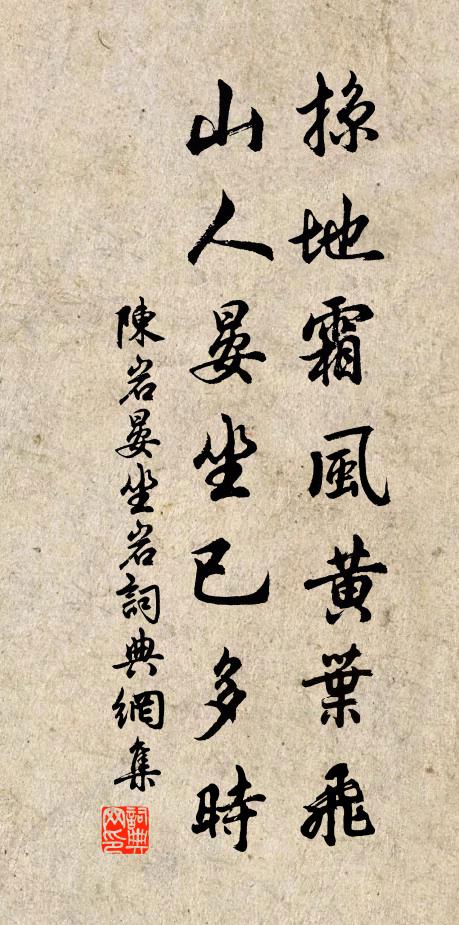 掠地霜風黃葉飛
山人晏坐已多時
陳岩晏坐岩詞典網集
詞典网印